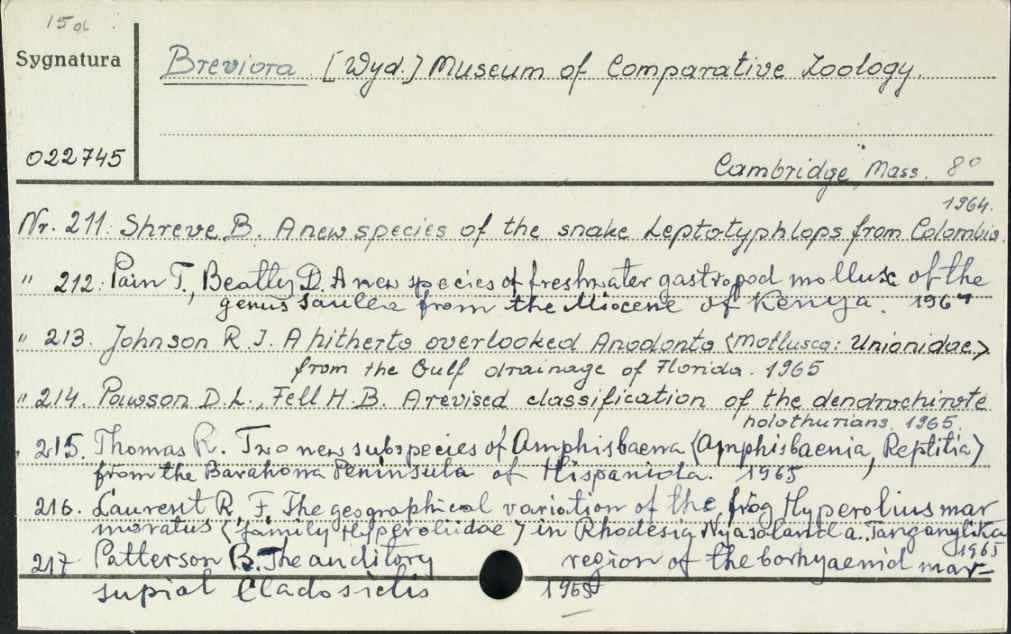 15 gl.
Sygnatura
Breviora [Wyd.] Museum of Comparative Zoology.
022745
Cambridge, Mass. 8°
1964.
Nr. 211. Shreve B. A new species of the snake Leptotyphlops from Colombia.
" 212. Pain T., Beatty D. A new species of freshwater gastropod mollusc of the
genus Saulea from the Miocene of Kenya. 1964
" 213. Johnson R. I. A hitherto overlooked Anodonta (mollusca: Unionidae)
from the Gulf drainage of Florida. 1965
" 214. Pawson D. L., Fell H. B. A revised classification of the dendrochirote
holothurians. 1965.
" 215. Thomas R. Two new subspecies of Amphisbaena (Amphisbaenia, Reptilia)
from the Barahona Peninsula of Hispaniola. 1965
216. Laurent R. F. The geographical variation of the frog Hyperolius mar
moratus (family Hyperoliidae) in Rhodesia, Nyasaland a. Tanganyika
1965
217 Patterson B. The auditory region of the borhyaenid mar-
supial Cladosictis 1965